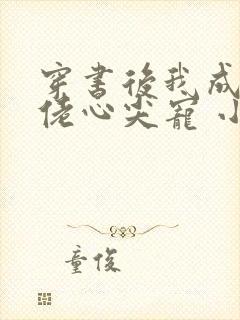 穿書後我成
佬心尖寵 小
童俊